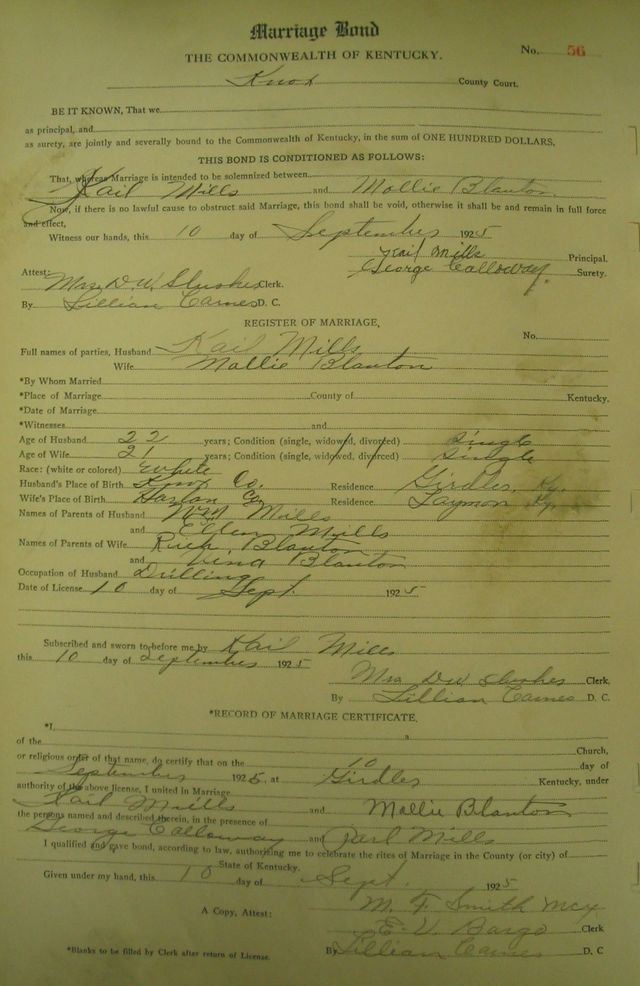 Marriage Bond
THE COMMONWEALTH OF KENTUCKY. No. 56
Knox County Court.
BE IT KNOWN, That we
as principal, and
as surety, are jointly and severally bound to the Commonwealth of Kentucky, in the sum of ONE HUNDRED DOLLARS,
THIS BOND IS CONDITIONED AS FOLLOWS:
That, whereas Marriage is intended to be solemnized between
Kail Mills and Mollie Blanton
Now, if there is no lawful cause to obstruct said Marriage, this bond shall be void, otherwise it shall be and remain in full force
and effect,
Witness our hands, this 10 day of September 1925
Kail Mills Principal.
George Calloway. Surety.
Attest: Mrs D. W. Slusher Clerk.
By Lillian Carnes D. C.
REGISTER OF MARRIAGE,
No.
Full names of parties, Husband Kail Mills
Wife Mollie Blanton
*By Whom Married
*Place of Marriage County of Kentucky.
*Date of Marriage
*Witnesses and
Age of Husband 22 years; Condition (single, widowed, divorced) Single
Age of Wife 21 years; Condition (single, widowed, divorced) Single
Race: (white or colored) White
Husband's Place of Birth Knox Co. Residence Girdler, Ky.
Wife's Place of Birth Harlan Co. Residence Laymon Ky.
Names of Parents of Husband Wm Mills
and Ellen Mills
Names of Parents of Wife Blanton
and Blanton
Occupation of Husband Drilling
Date of License 10 day of Sept. 1925
Subscribed and sworn to before me by Kail Mills
this 10 day of September 1925
Mrs D W Slusher Clerk.
By Lillian Carnes D. C.
*RECORD OF MARRIAGE CERTIFICATE.
*I, a
of the Church,
or religious order of that name, do certify that on the 10 day of
September 1925, at Girdler Kentucky, under
authority of the above license, I united in Marriage
Kail Mills and Mollie Blanton
the persons named and described therein, in the presence of
George Calloway and Mills
I qualified and gave bond, according to law, authorizing me to celebrate the rites of Marriage in the County (or city) of
State of Kentucky.
Given under my hand, this 10 day of Sept. 1925
M. F. Smith
A Copy, Attest: E. V. Bargo Clerk
*Blanks to be filled by Clerk after return of License. By Lillian Carnes D. C